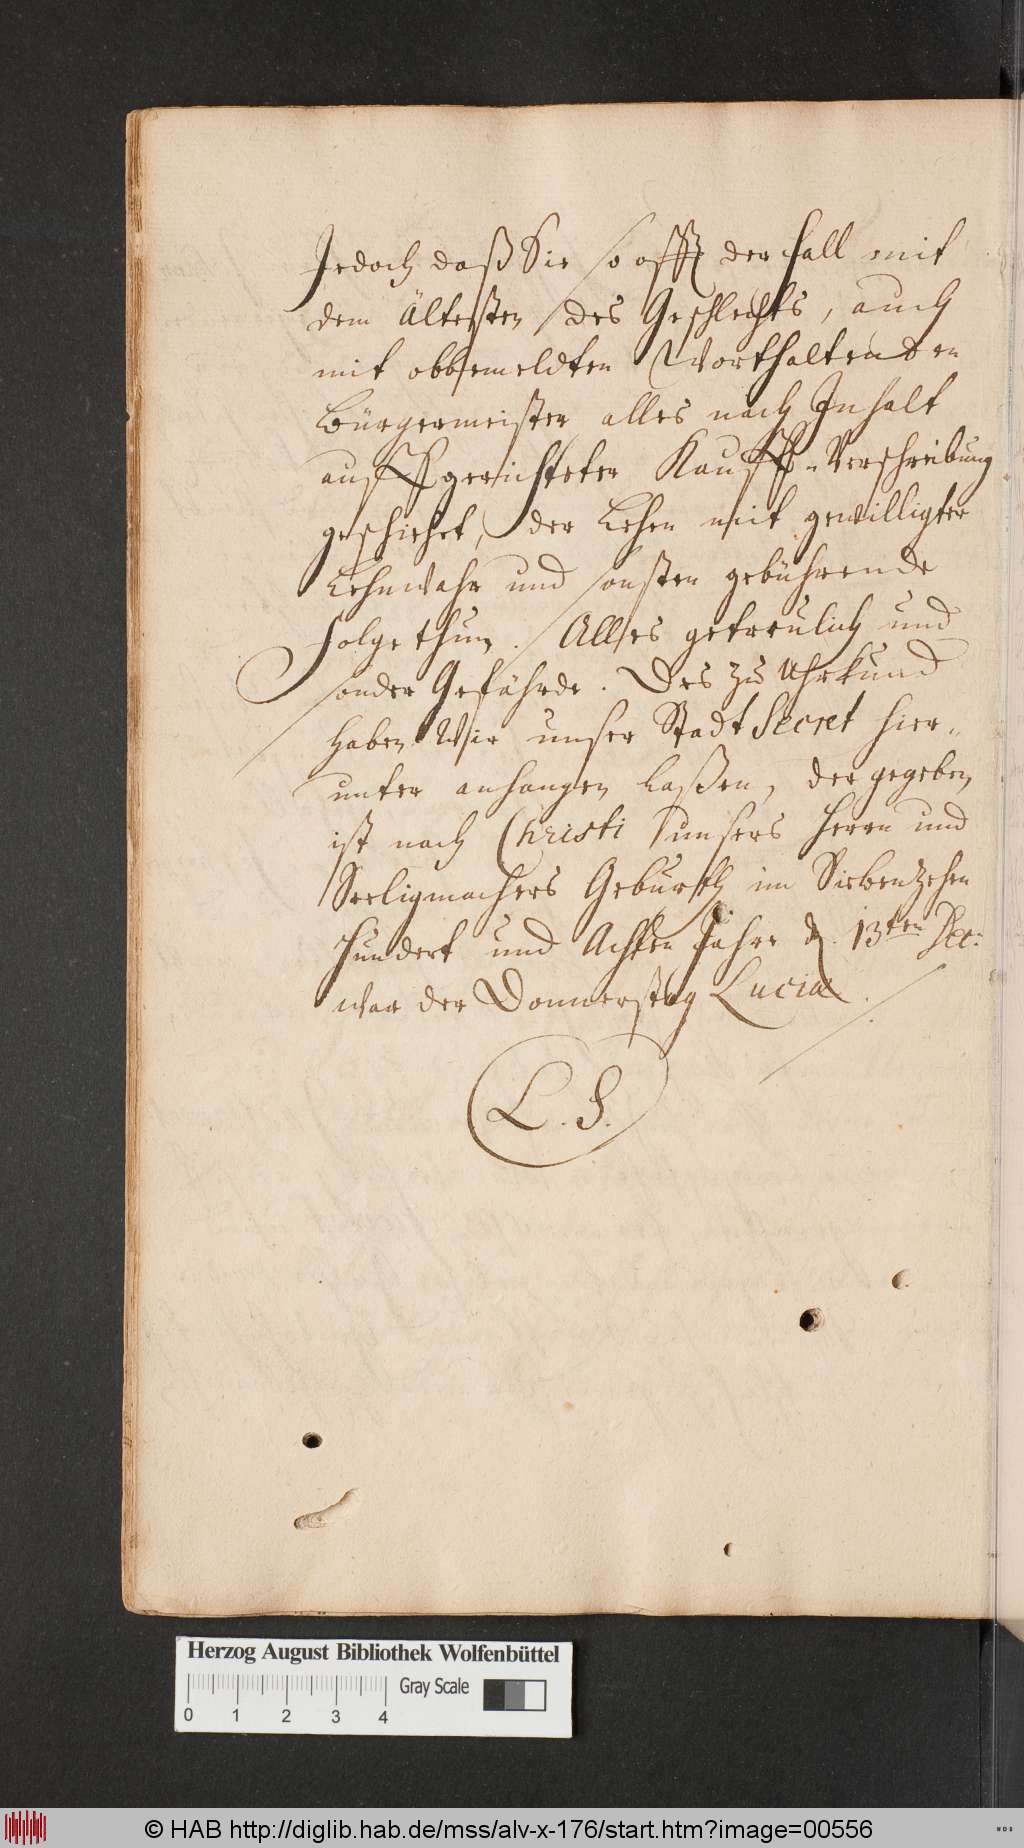 Jedoch daß Sie so offt der Fall mit
dem Ältesten des Geschlechts, auch
mit obbemeldten Worthaltenden
Bürgermeister alles nach Inhalt
auffgerichteter Kauff-Verschreibung
geschiehet, der Lehen mit gewilligter
Lehnwahr und sonsten gebührende
Folge thun. Alles getreulich und
sonder Gefährde. Des zu Uhrkund
haben Wir unser Stadt Secret hier„
unter anhangen laßen, der gegeben
ist nach Christi unsers Herrn und
Seeligmachers Geburth im Siebenzehen
Hundert und Achten Jahre d. 13ten Dec:
war der Donnerstag Lucia.
L. S.
Herzog August Bibliothek Wolfenbüttel
Gray Scale
0 1 2 3 4
© HAB http://diglib.hab.de/mss/alv-x-176/start.htm?image=00556